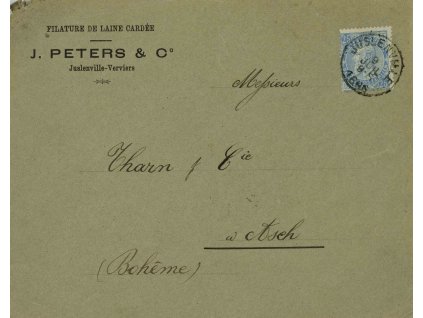 FILATURE DE LAINE CARDÉE
J. PETERS & Cº
Juslenville-Verviers
Messieurs
Tharn & Cie
à Asch
(Bohême)
JUSLENVILLE